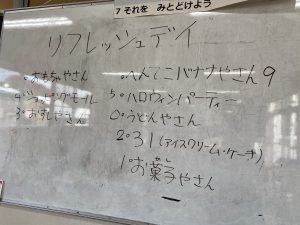 7 それを みとどけよう
リフレッシュデイ
2. おもちゃやさん
4. ショッピングモール
3. おすしやさん
0. へんてこバナナやさん 9
5. ハロウィンパーティー
0. うどんやさん
2. 31 (アイスクリーム・ケーキ)
1. お菓子やさん